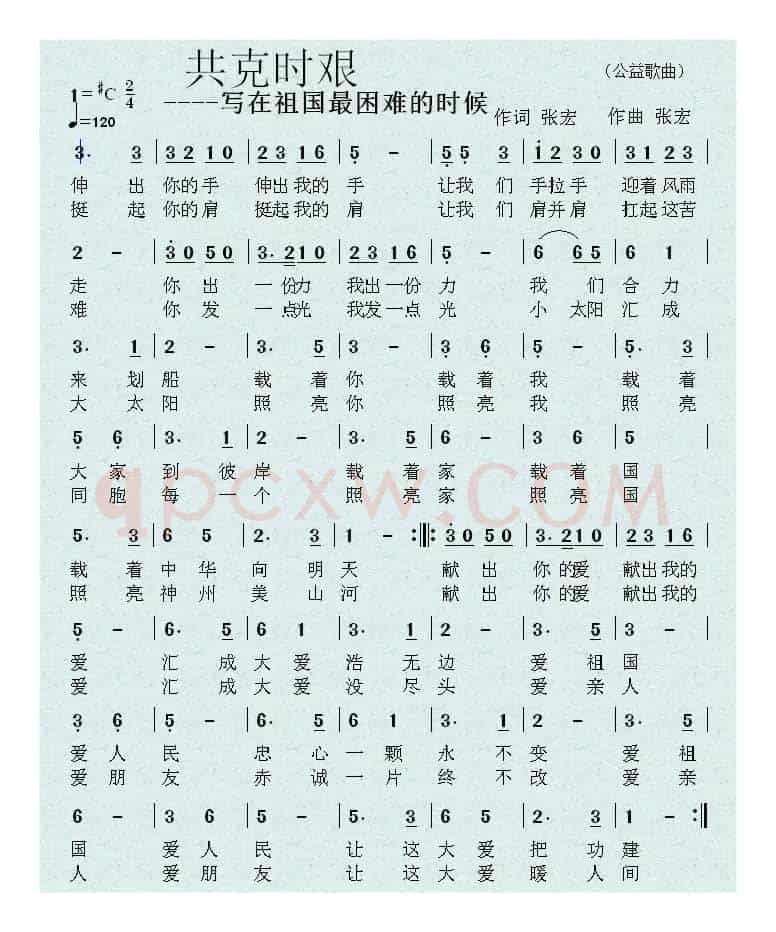 共克时艰
（公益歌曲）
1=#C 2/4
----写在祖国最困难的时候
♩=120
作词 张宏 作曲 张宏
3. 3 | 32 10 | 23 16 | 5 - | 55 3 | 12 30 | 31 23 |
伸 出 你的手 伸出我的 手 让我 们 手拉手 迎着风雨
挺 起 你的肩 挺起我的 肩 让我 们 肩并肩 扛起这苦
2 - | 30 50 | 3.210 | 23 16 | 5 - | 6 65 | 6 1 |
走 你 出 一份力 我出一份 力 我 们 合 力
难 你 发 一点光 我发一点 光 小 太阳 汇 成
3. 1 | 2 - | 3. 5 | 3 - | 3 6 | 5 - | 5. 3 |
来 划 船 载 着 你 载 着 我 载 着
大 太 阳 照 亮 你 照 亮 我 照 亮
5 6 | 3. 1 | 2 - | 3. 5 | 6 - | 3 6 | 5
大 家 到 彼 岸 载 着 家 载 着 国
同 胞 每 一 个 照 亮 家 照 亮 国
qpcxw.COM
5. 3 | 6 5 | 2. 3 | 1 - :||: 30 50 | 3.210 | 23 16 |
载 着 中 华 向 明 天 献 出 你 的爱 献出我的
照 亮 神 州 美 山 河 献 出 你 的爱 献出我的
5 - | 6. 5 | 6 1 | 3. 1 | 2 - | 3. 5 | 3 - |
爱 汇 成 大 爱 浩 无 边 爱 祖 国
爱 汇 成 大 爱 没 尽 头 爱 亲 人
3 6 | 5 - | 6. 5 | 6 1 | 3. 1 | 2 - | 3. 5 |
爱 人 民 忠 心 一 颗 永 不 变 爱 祖
爱 朋 友 赤 诚 一 片 终 不 改 爱 亲
6 - | 3 6 | 5 - | 5. 3 | 6 5 | 2. 3 | 1 - :||
国 爱 人 民 让 这 大 爱 把 功 建
人 爱 朋 友 让 这 大 爱 暖 人 间